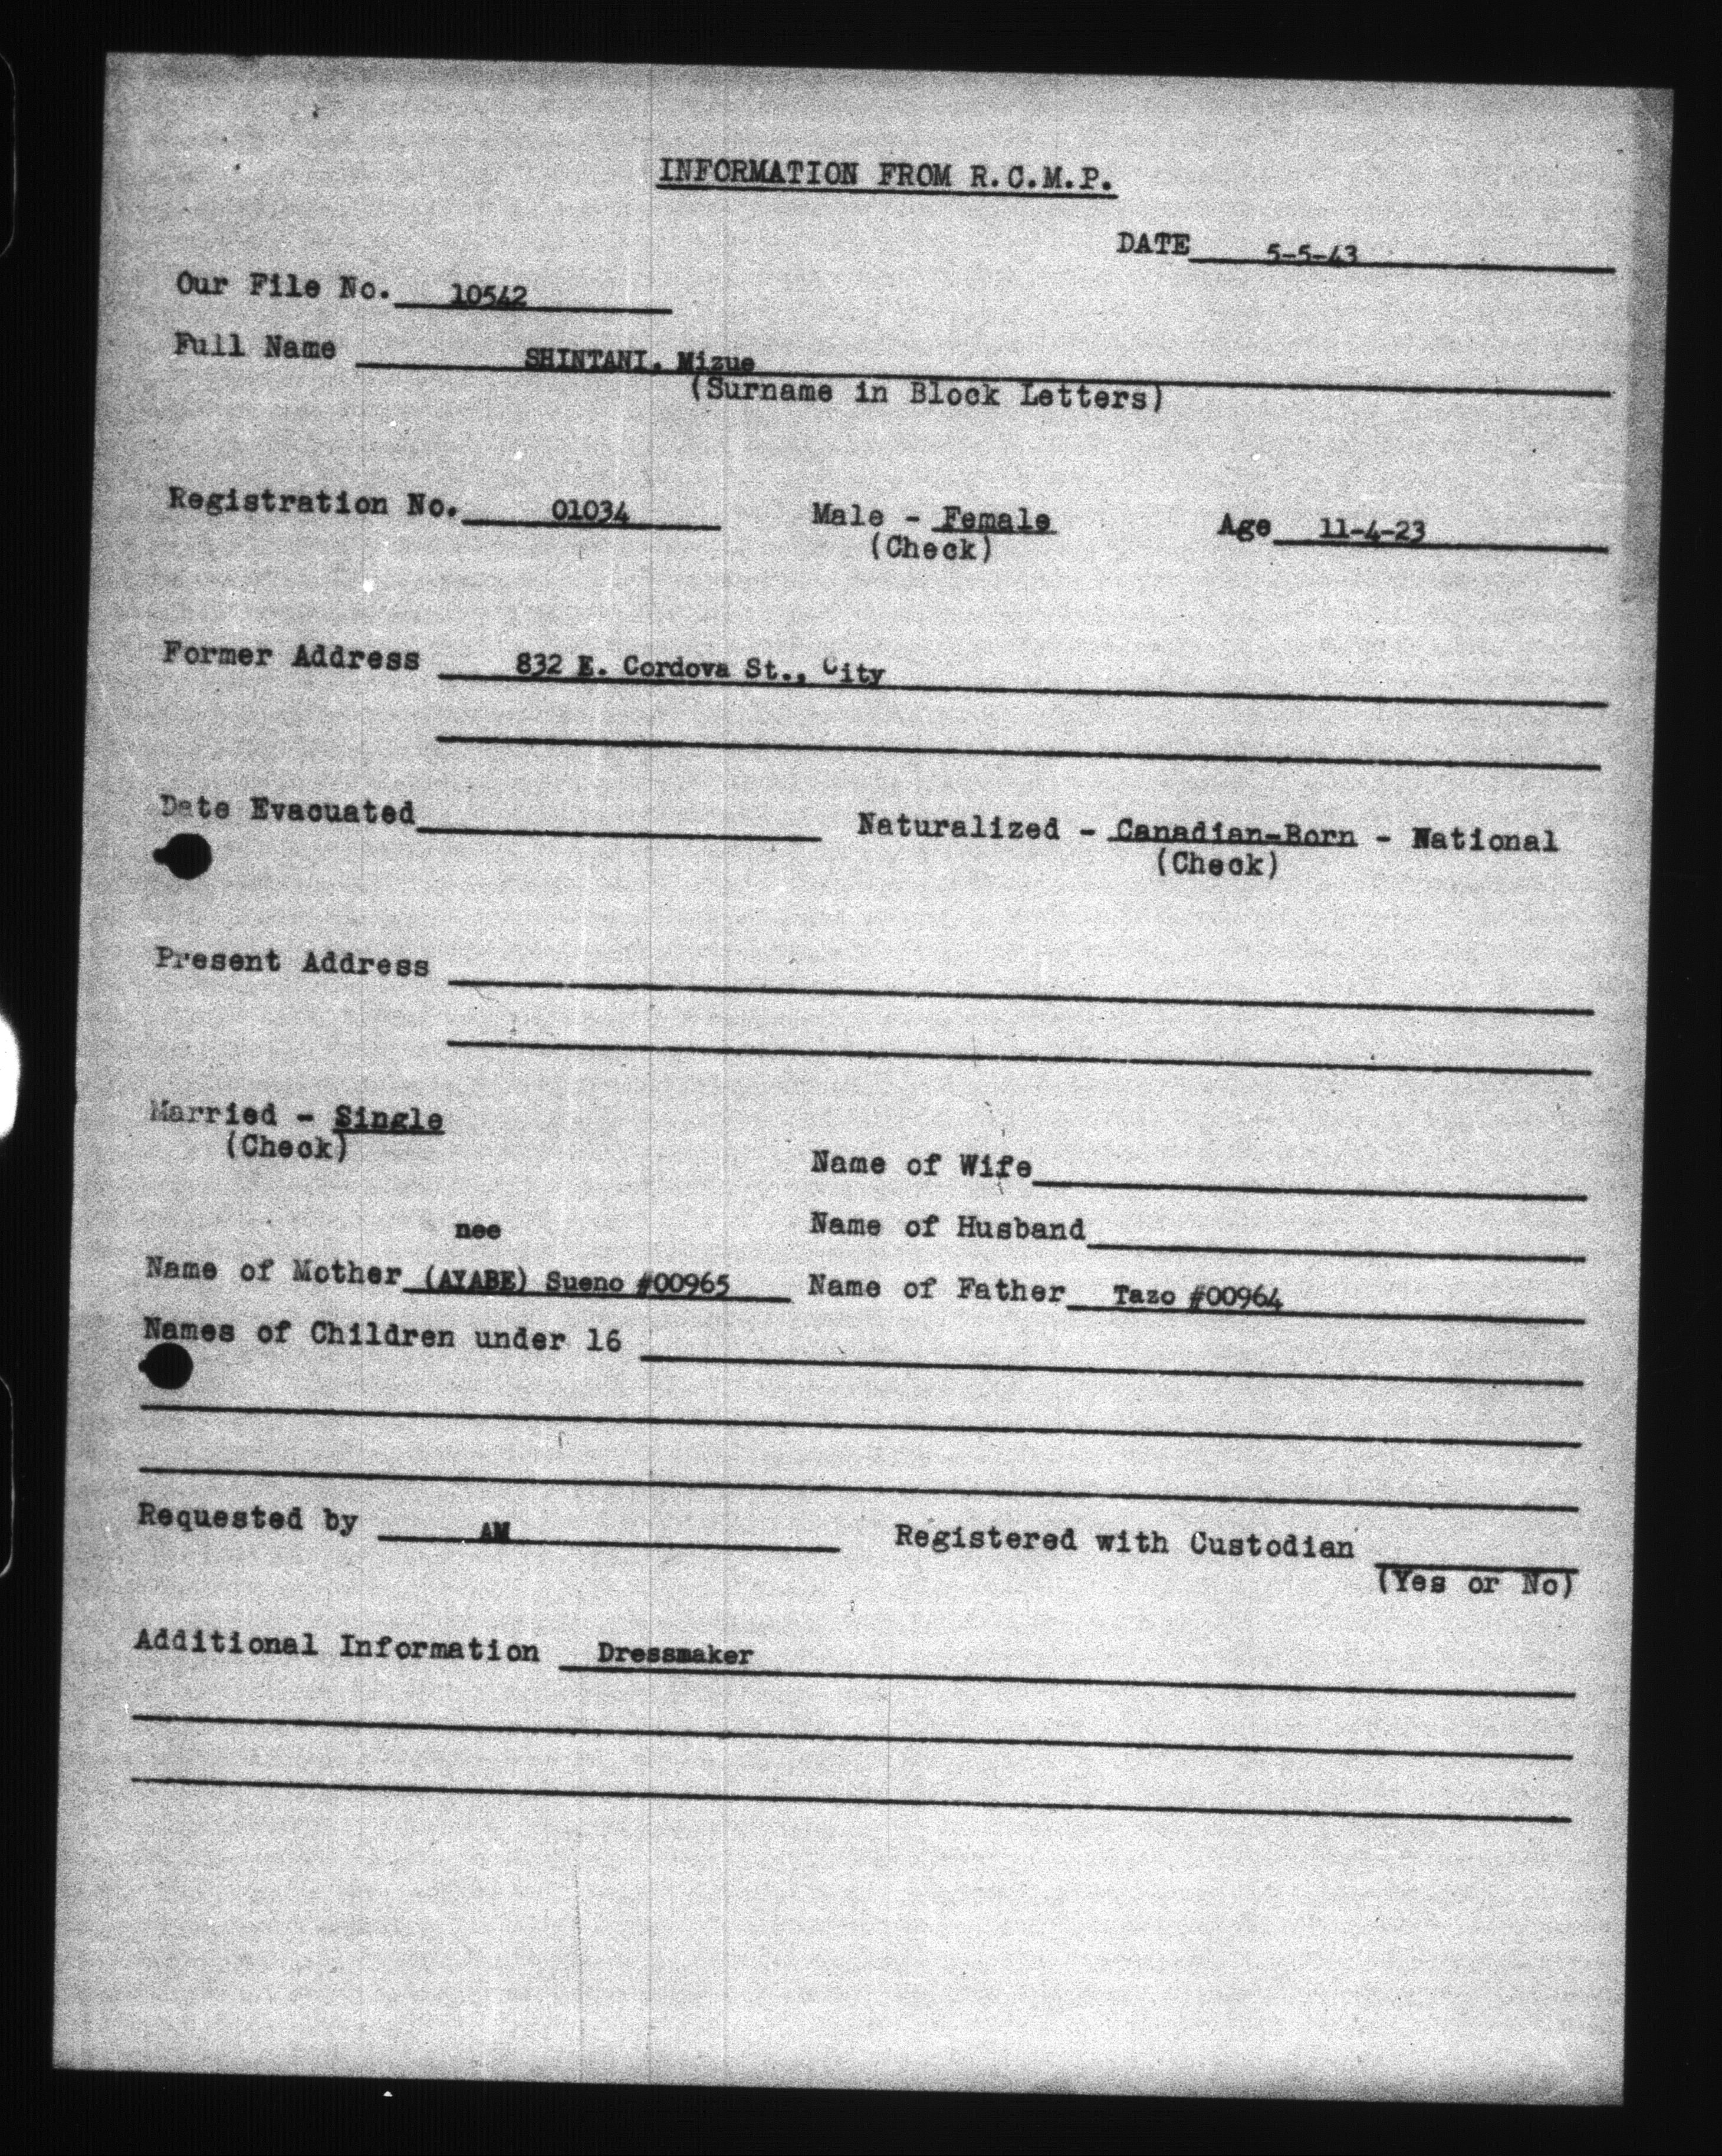 INFORMATION FROM R.C.M.P.
DATE 5-5-43
Our File No. 10542
Full Name SHINTANI, Mizue
(Surname in Block Letters)
Registration No. 01034 Male - Female Age 11-4-23
(Check)
Former Address 832 E. Cordova St., City
Date Evacuated Naturalized - Canadian-Born - National
(Check)
Present Address
Married - Single
(Check)
Name of Wife
nee Name of Husband
Name of Mother (AYABE) Sueno #00965 Name of Father Tazo #00964
Names of Children under 16
Requested by AM Registered with Custodian
(Yes or No)
Additional Information Dressmaker